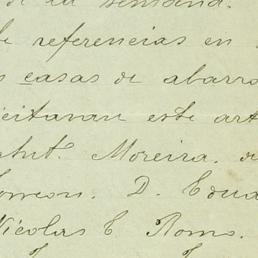 de la semana.
de referencias en
casas de abarro
icitaran este art
Moreira. d
orreon. D. Edua
Nicolas C Romo.